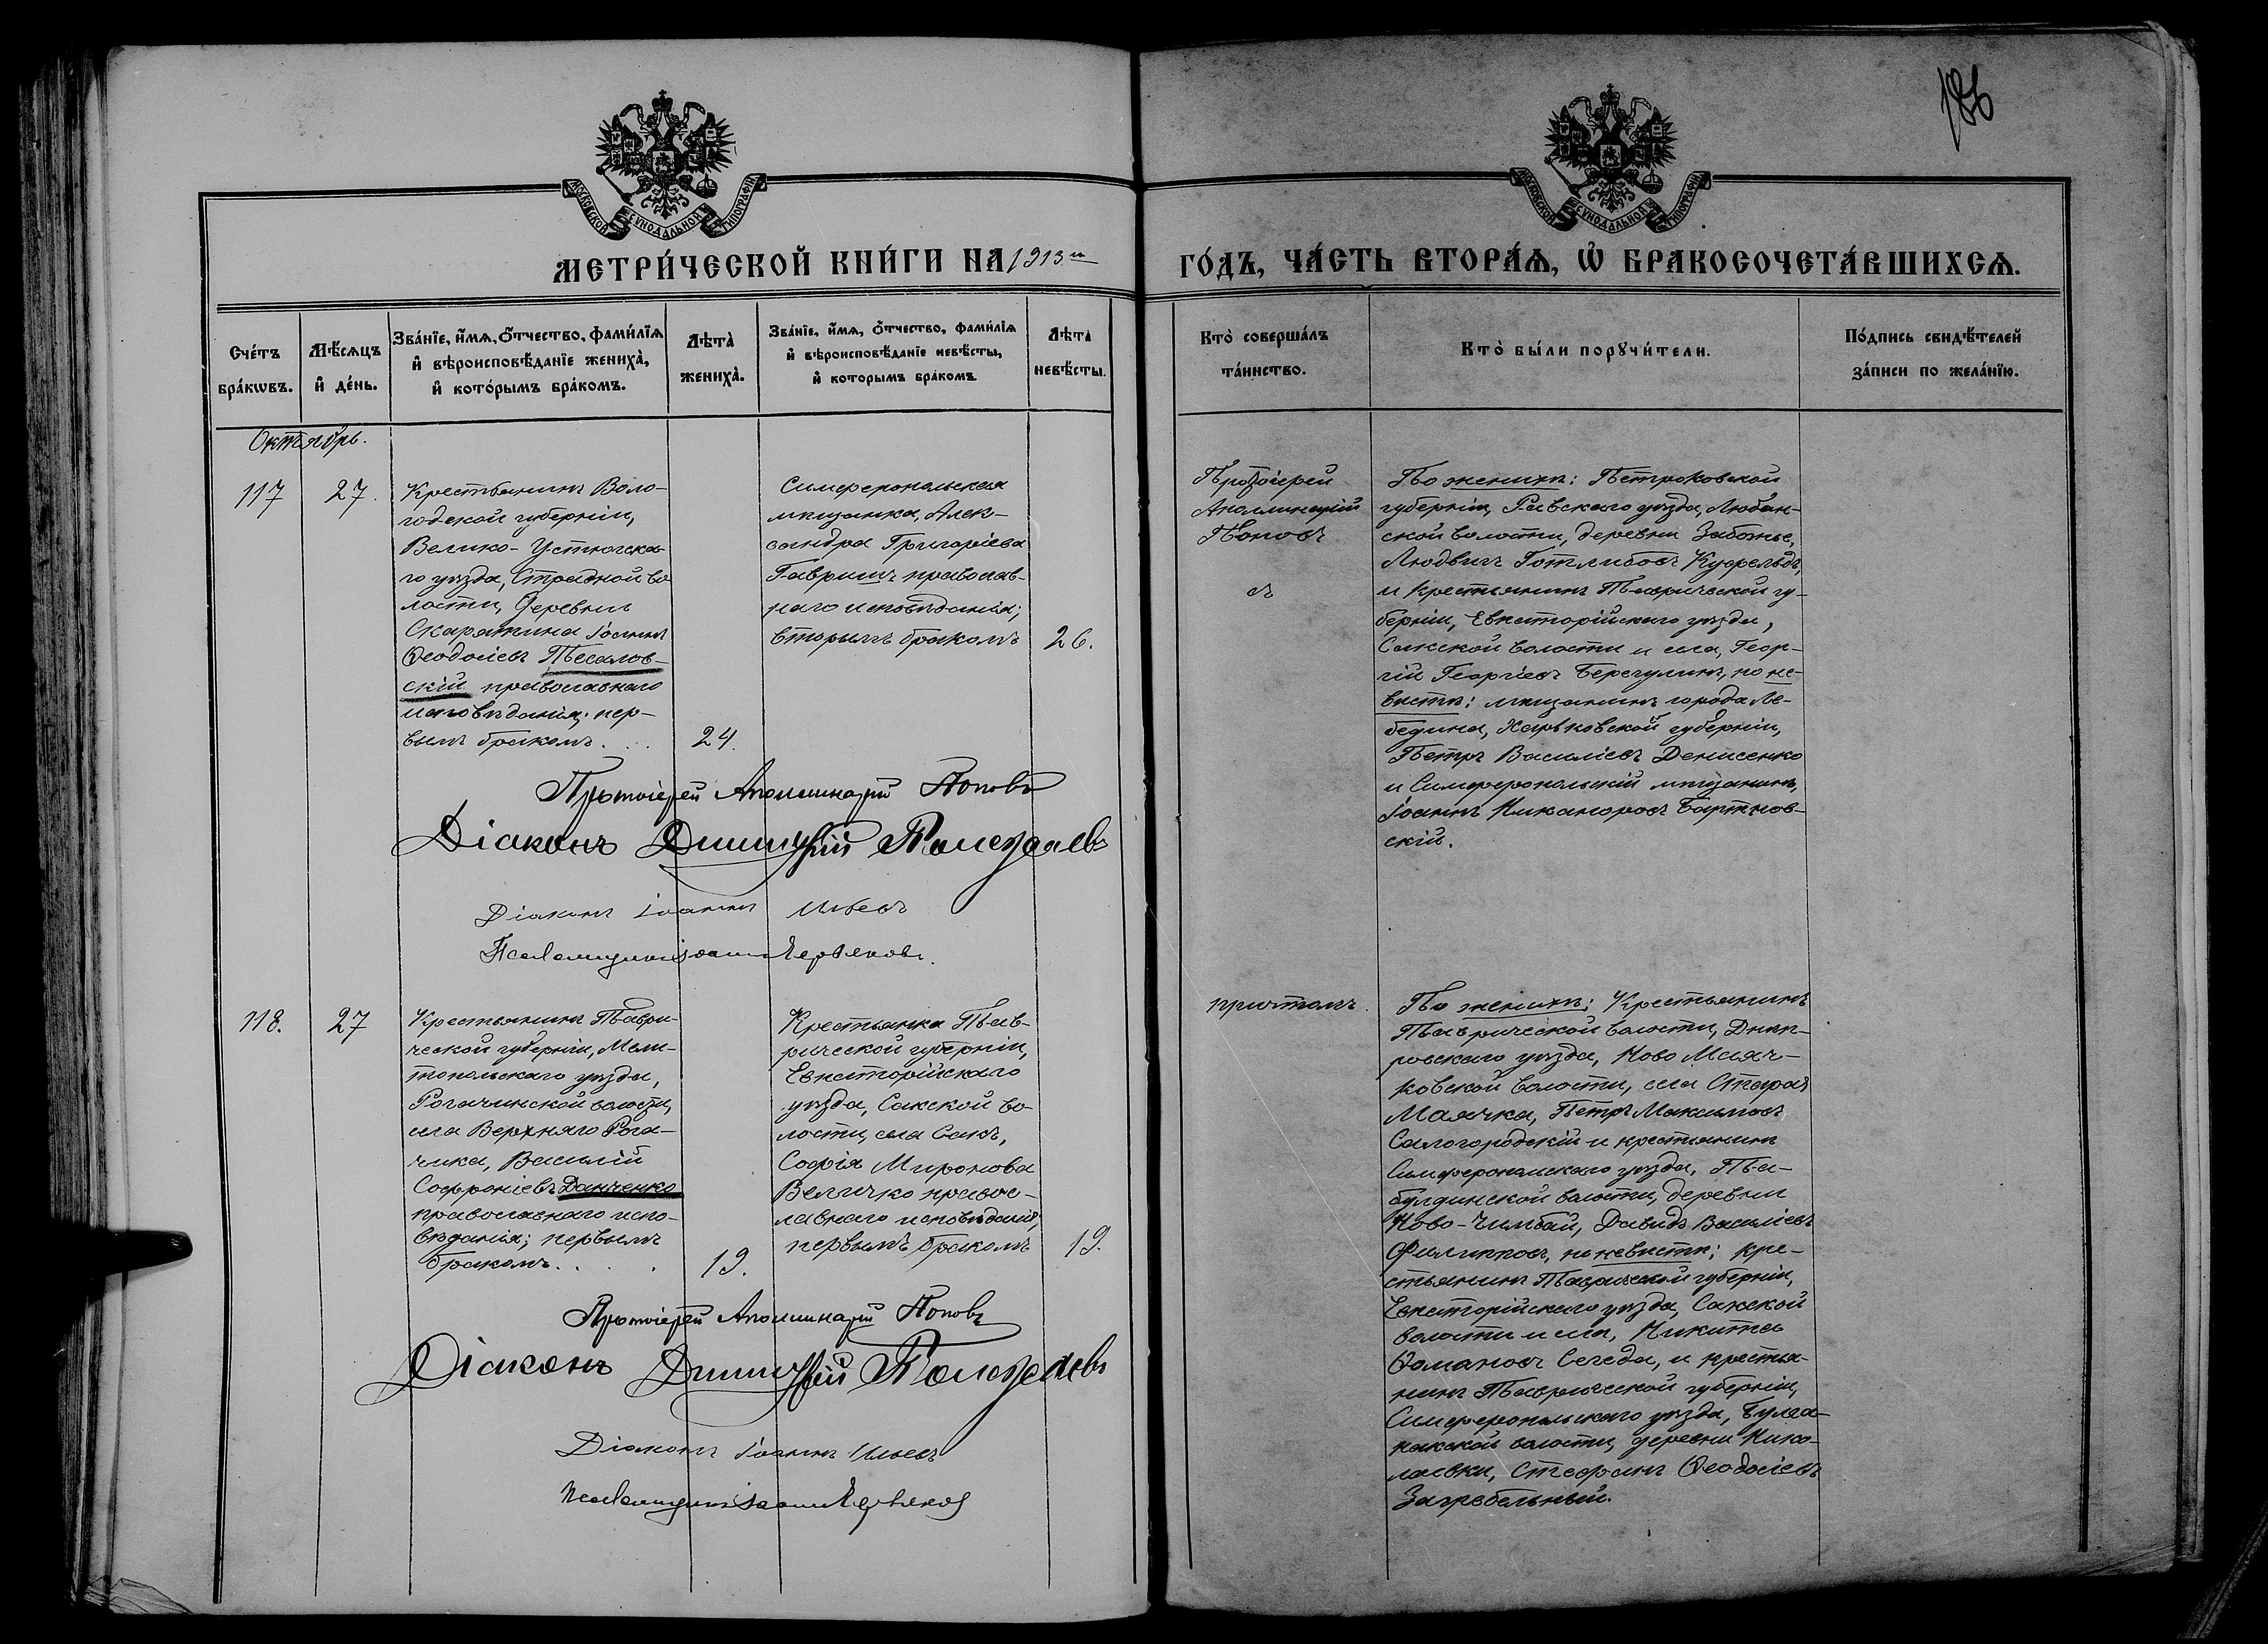 186
МОСКОВСКОЙ СѴНОДАЛЬНОЙ ТИПОГРАФІИ
МОСКОВСКОЙ СѴНОДАЛЬНОЙ ТИПОГРАФІИ
МЕТРИ́ЧЕСКОЙ КНИ́ГИ НА 1913 й
ГО́ДЪ, ЧА́СТЬ ВТОРА́Ѧ, Ѡ҆ БРАКОСОЧЕТА́ВШИХСѦ.
Сче́тъ
бра́кѡвъ.
Мѣ́сѧцъ
и҆ де́нь.
Зва́нїе, и҆́мѧ, ѻ҆́тчество, фами́лїѧ
и҆ вѣроисповѣ́данїе жениха̀,
и҆ кото́рымъ бра́комъ.
Лѣта̀
жениха̀.
Зва́нїе, и҆́мѧ, ѻ҆́тчество, фами́лїѧ
и҆ вѣроисповѣ́данїе невѣ́сты,
и҆ которымъ бра́комъ
Лѣта̀
невѣ́сты.
Кто̀ соверша́лъ
та́инство.
Кто̀ бы́ли порꙋчи́тели.
По́дпись свидѣ́телей
за́писи по жела́нїю.
Октябрь.
117
27.
Крестьянинъ Воло-
годской губерніи,
Велико-Устюгска-
го уѣзда, Страдной во
лости, деревни
Скарятина Іоаннъ
Ѳеодосіевъ
скій православнаго
исповѣданія; пер-
вымъ бракомъ. . .
24.
Симферопольская
мѣщанка, Алек-
сандра Григоріева
Гавришъ православ-
наго исповѣданія;
вторымъ бракомъ
26.
Протоіерей
Аполлинарій
Поповъ
съ
По женихѣ: Петроковской
губерніи, Равскаго уѣзда, Любан-
ской волости, деревни
Людвигъ Готлибовъ
и крестьянинъ Таврической гу-
берніи, Евпаторійскаго уѣзда,
Сакской волости и села, Геор-
гій Георгіевъ Берегулинъ, по не-
вѣстѣ: мѣщанинъ города Ле-
бедина, Харьковской губерніи,
Петръ Василіевъ Денисенко
и Симферопольскій мѣщанинъ,
Іоаннъ Никаноровъ Бартнов-
скій.
Протоіерей Аполлинарій Поповъ
Діаконъ Димитрій Полежаевъ
Діаконъ Іоаннъ
Псаломщикъ Іоаннъ Червяковъ.
118.
27
Крестьянинъ Таври-
ческой губерніи, Мели-
топольскаго уѣзда,
Рогачинской волости,
села Верхняго Рога-
чика, Василій
Софроніевъ Данченко
православнаго испо-
вѣданія; первымъ
бракомъ. . . .
19.
Крестьянка Тав-
рической губерніи,
Евпаторійскаго
уѣзда, Сакской во-
лости, села Сакъ,
Софія Миронова
Величко правос-
лавнаго исповѣданія,
первымъ бракомъ
19.
причтомъ.
По женихѣ: Крестьянинъ
Таврической волости, Днѣп-
ровскаго уѣзда, Ново Маяч-
ковской волости, села Старая
Маячка, Петръ Максимовъ
Салогородскій и крестьянинъ
Симферопольскаго уѣзда, Та-
булдинской волости, деревни
Ново-Чимбай, Давидъ Василіевъ
Филипповъ, по невѣстѣ; кре-
стьянинъ Таврической губерніи,
Евпаторійскаго уѣзда, Сакской
волости и села, Никита
Ѳомановъ Сегеда, и крестья-
нинъ Таврической губерніи,
Симферопольскаго уѣзда, Булга-
накской волости, деревни Нико-
лаевки, Стефанъ Ѳеодосіевъ
Загребельный.
Протоіерей Аполлинарій Поповъ
Діаконъ Димитрій Полежаевъ
Діаконъ Іоаннъ
Псаломщикъ Іоаннъ Червяковъ